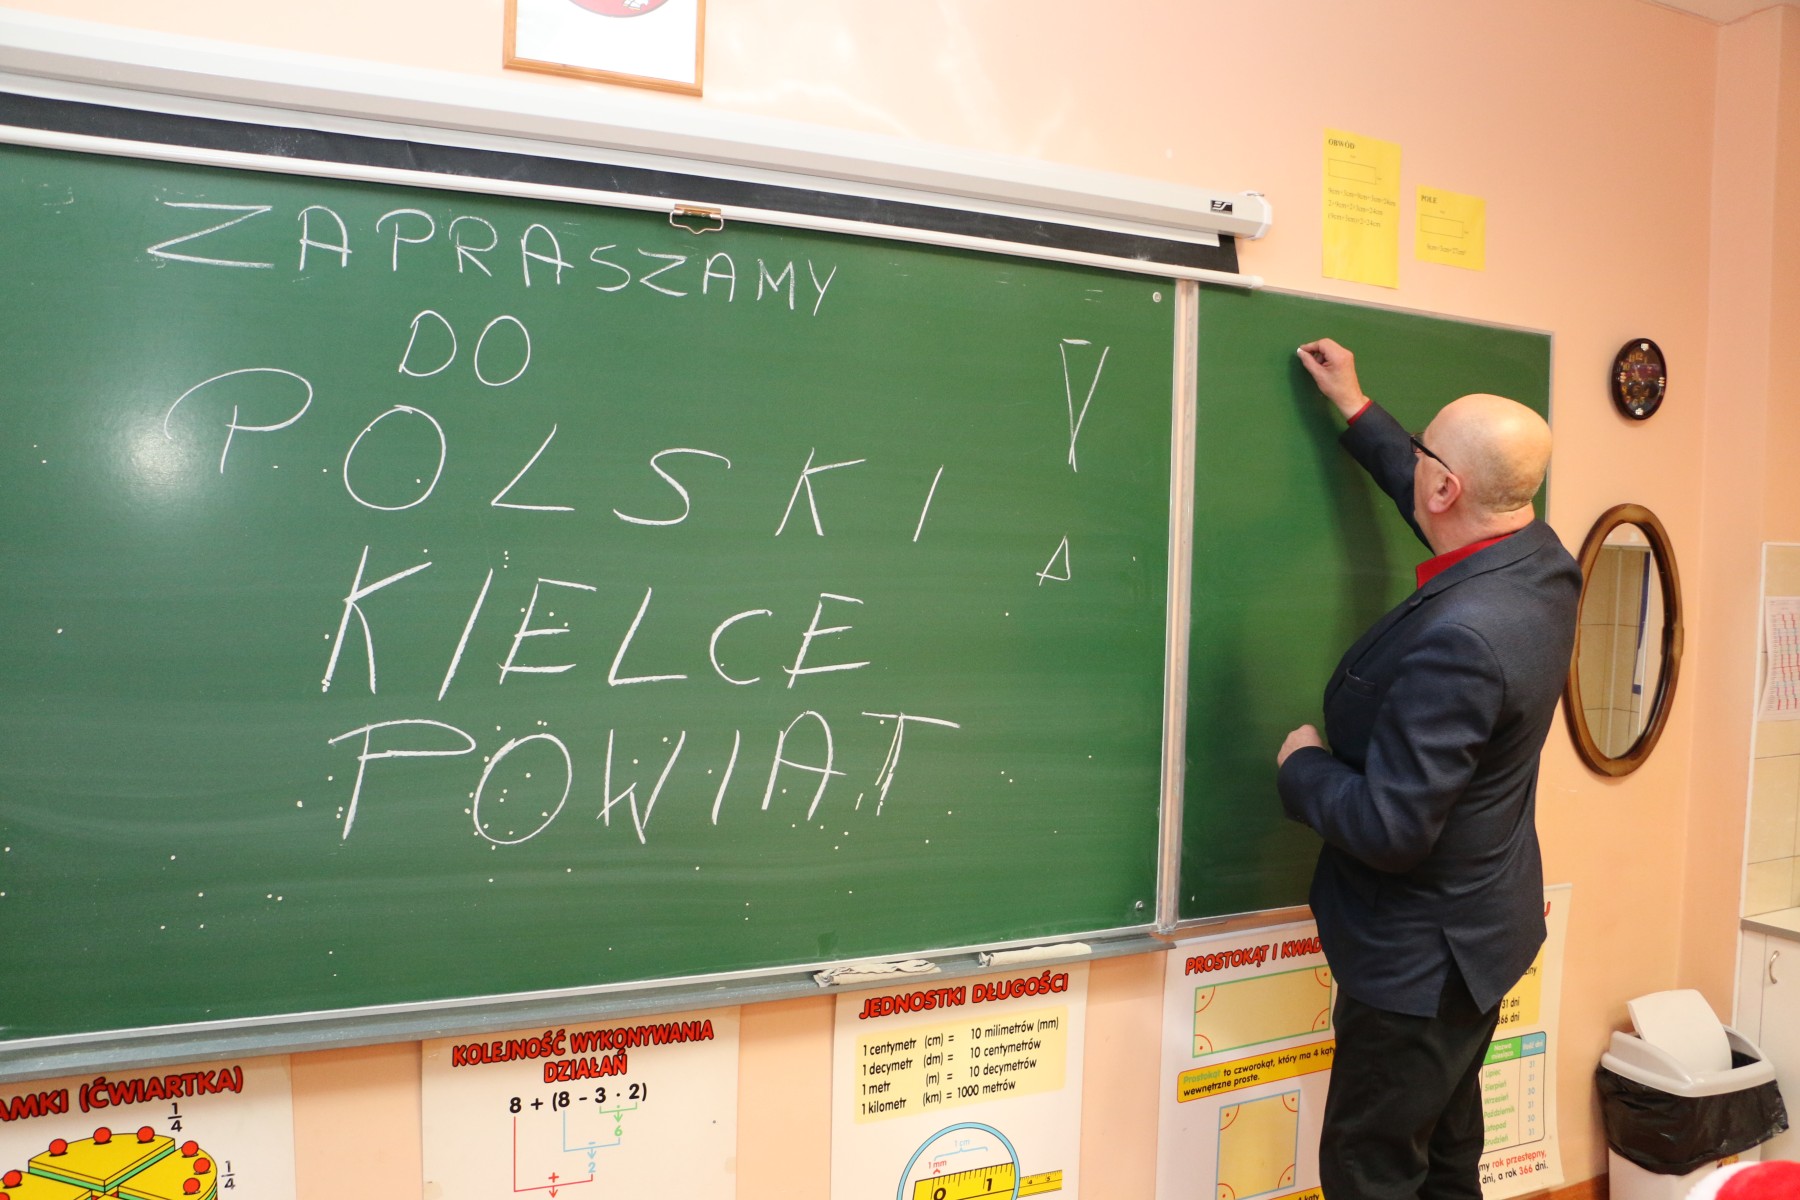 ZAPRASZAMY
DO
POLSKI
KIELCE
POWIAT
OBWÓD
POLE
AMKI (ĆWIARTKA)
1/4
1/4
KOLEJNOŚĆ WYKONYWANIA
DZIAŁAŃ
8 + (8 - 3 · 2)
6
-
2
+
JEDNOSTKI DŁUGOŚCI
1 centymetr (cm) = 10 milimetrów (mm)
1 decymetr (dm) = 10 centymetrów
1 metr (m) = 10 decymetrów
1 kilometr (km) = 1000 metrów
1 cm
1 mm
0 1
PROSTOKĄT I KWAD
Prostokąt to czworokąt, który ma 4 kąty
wewnętrzne proste.
31 dni
366 dni
Nazwa miesiąca Ilość dni
Lipiec 31
Sierpień 31
Wrzesień 30
Październik 31
Listopad 30
Grudzień 31
my rok przestępny,
dni, a rok 366 dni.